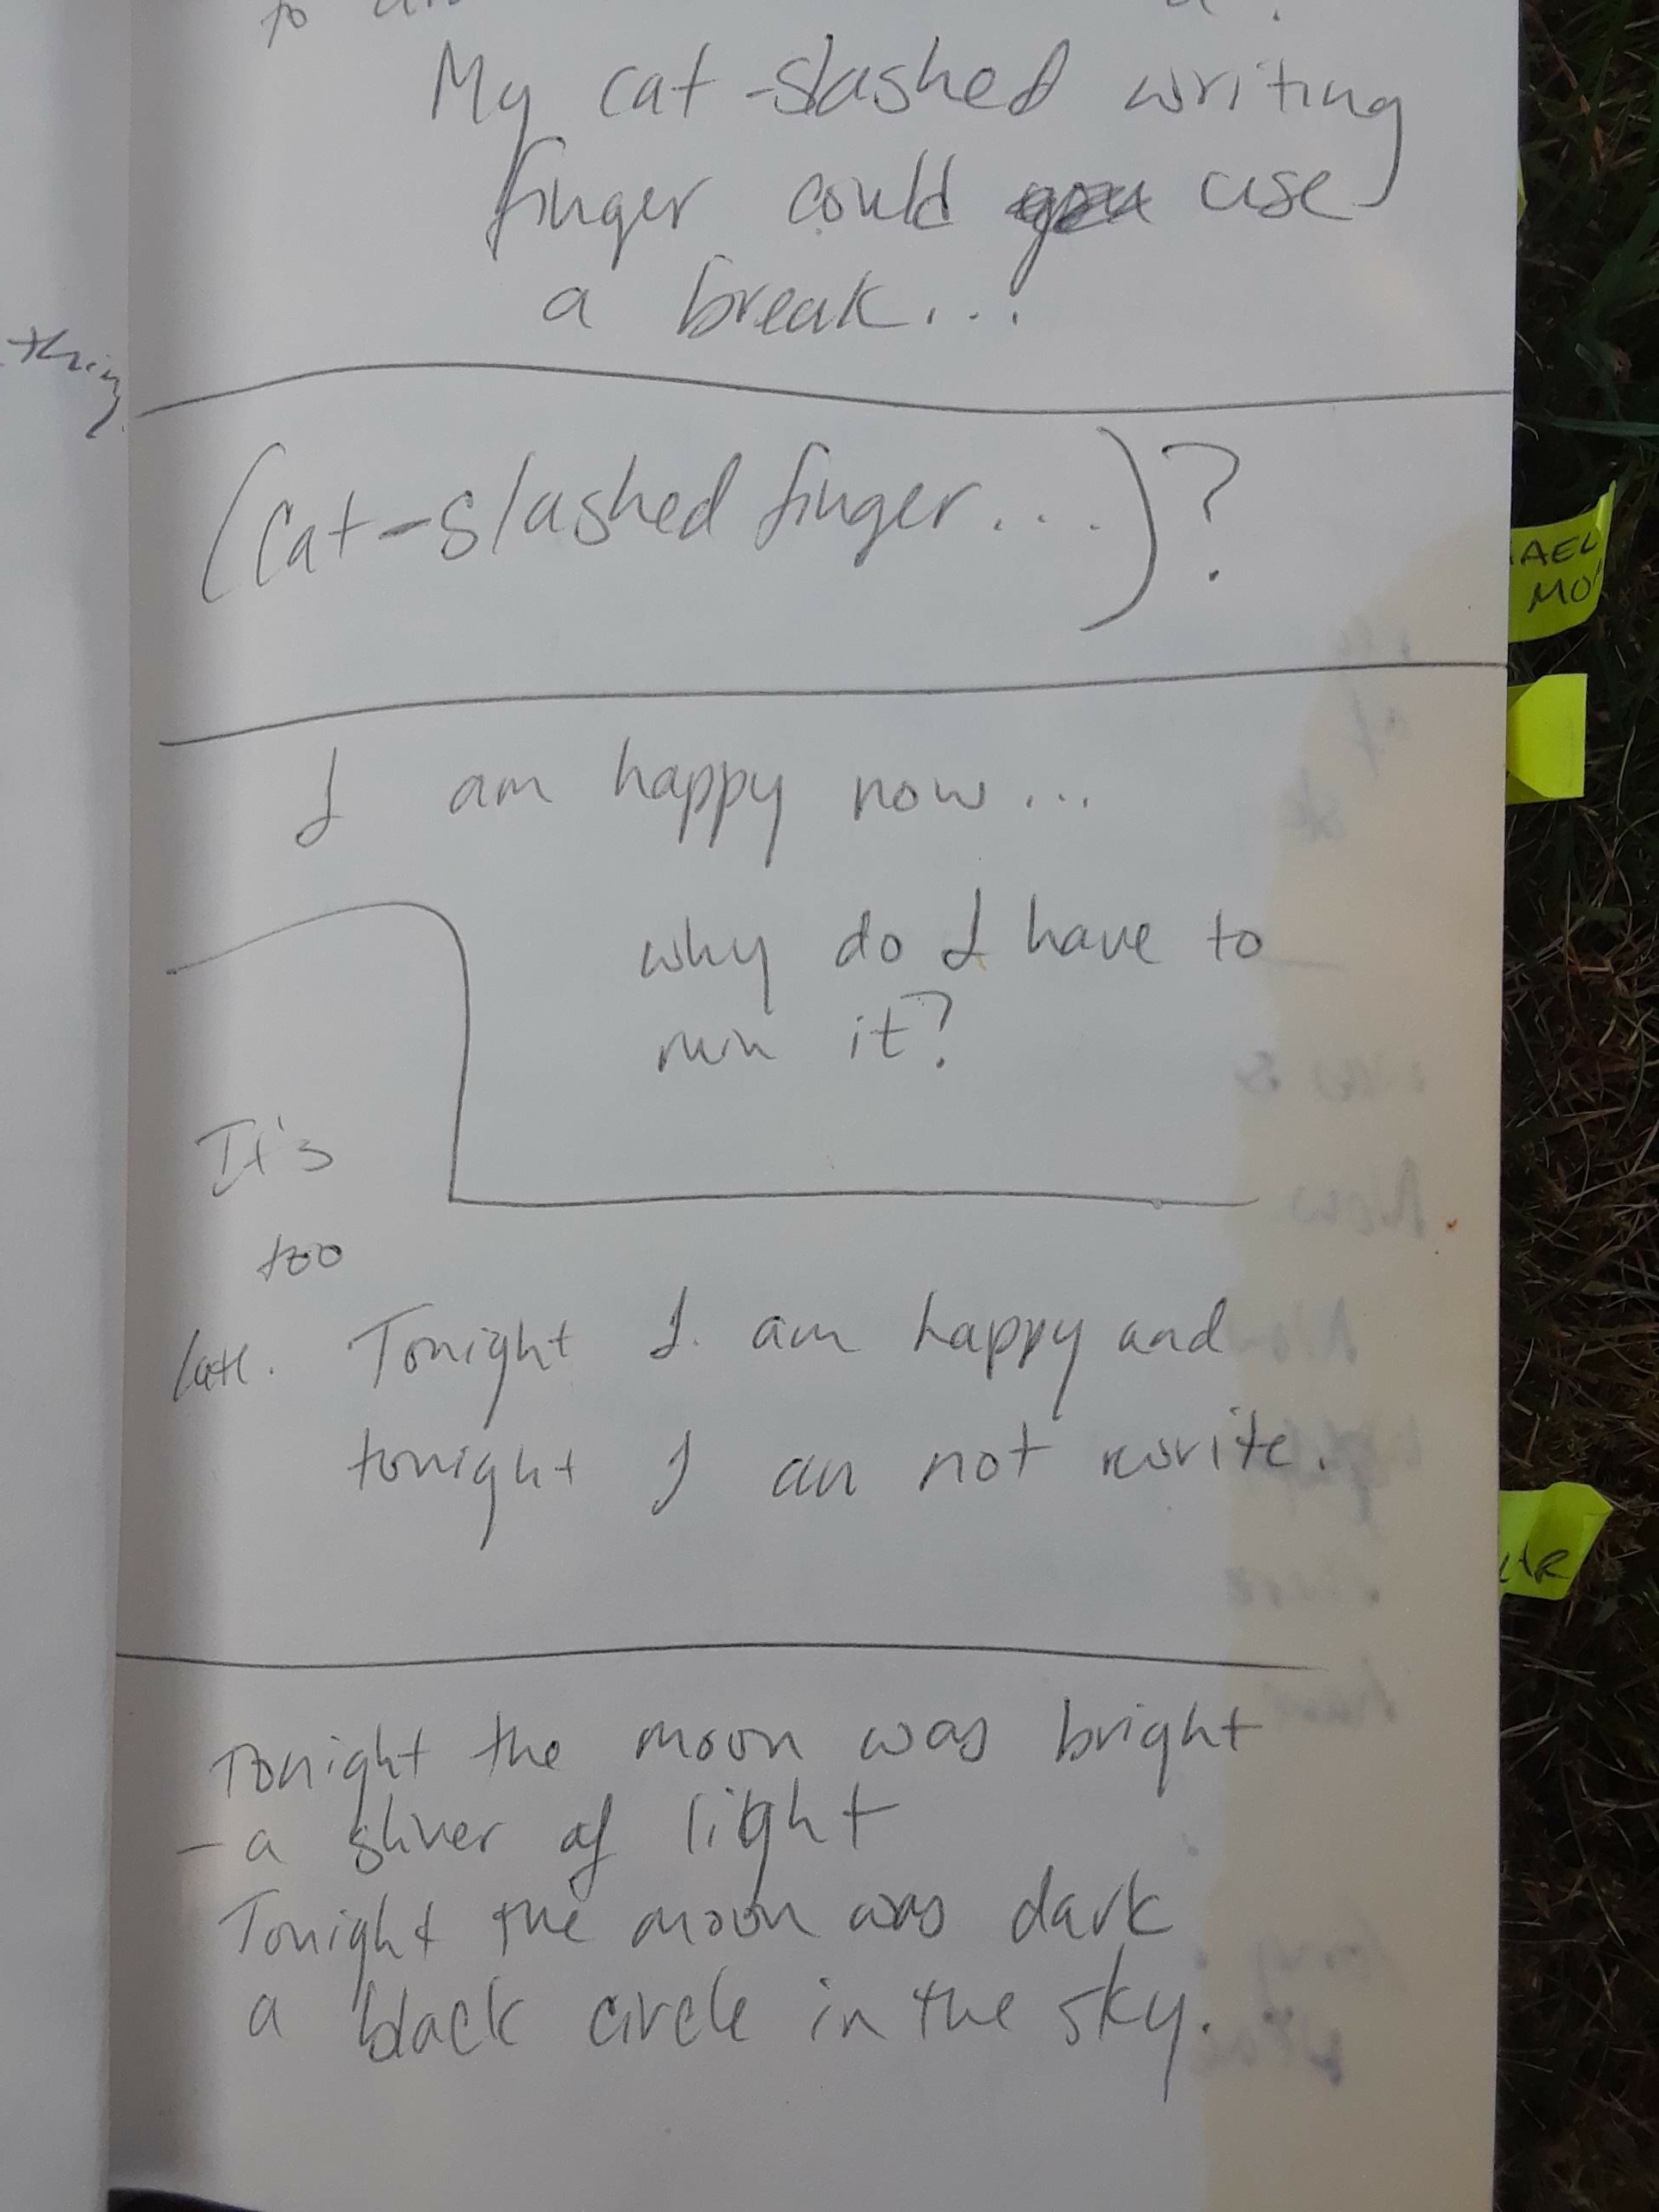 to
My cat-slashed writing
finger could you use
a break...
thing
(Cat-slashed finger...)?
I am happy now...
why do I have to
ruin it?
It's
too
late.
Tonight I am happy and
tonight I am not write.
Tonight the moon was bright
- a sliver of light
Tonight the moon was dark
a black circle in the sky.
AEL
MO
AR